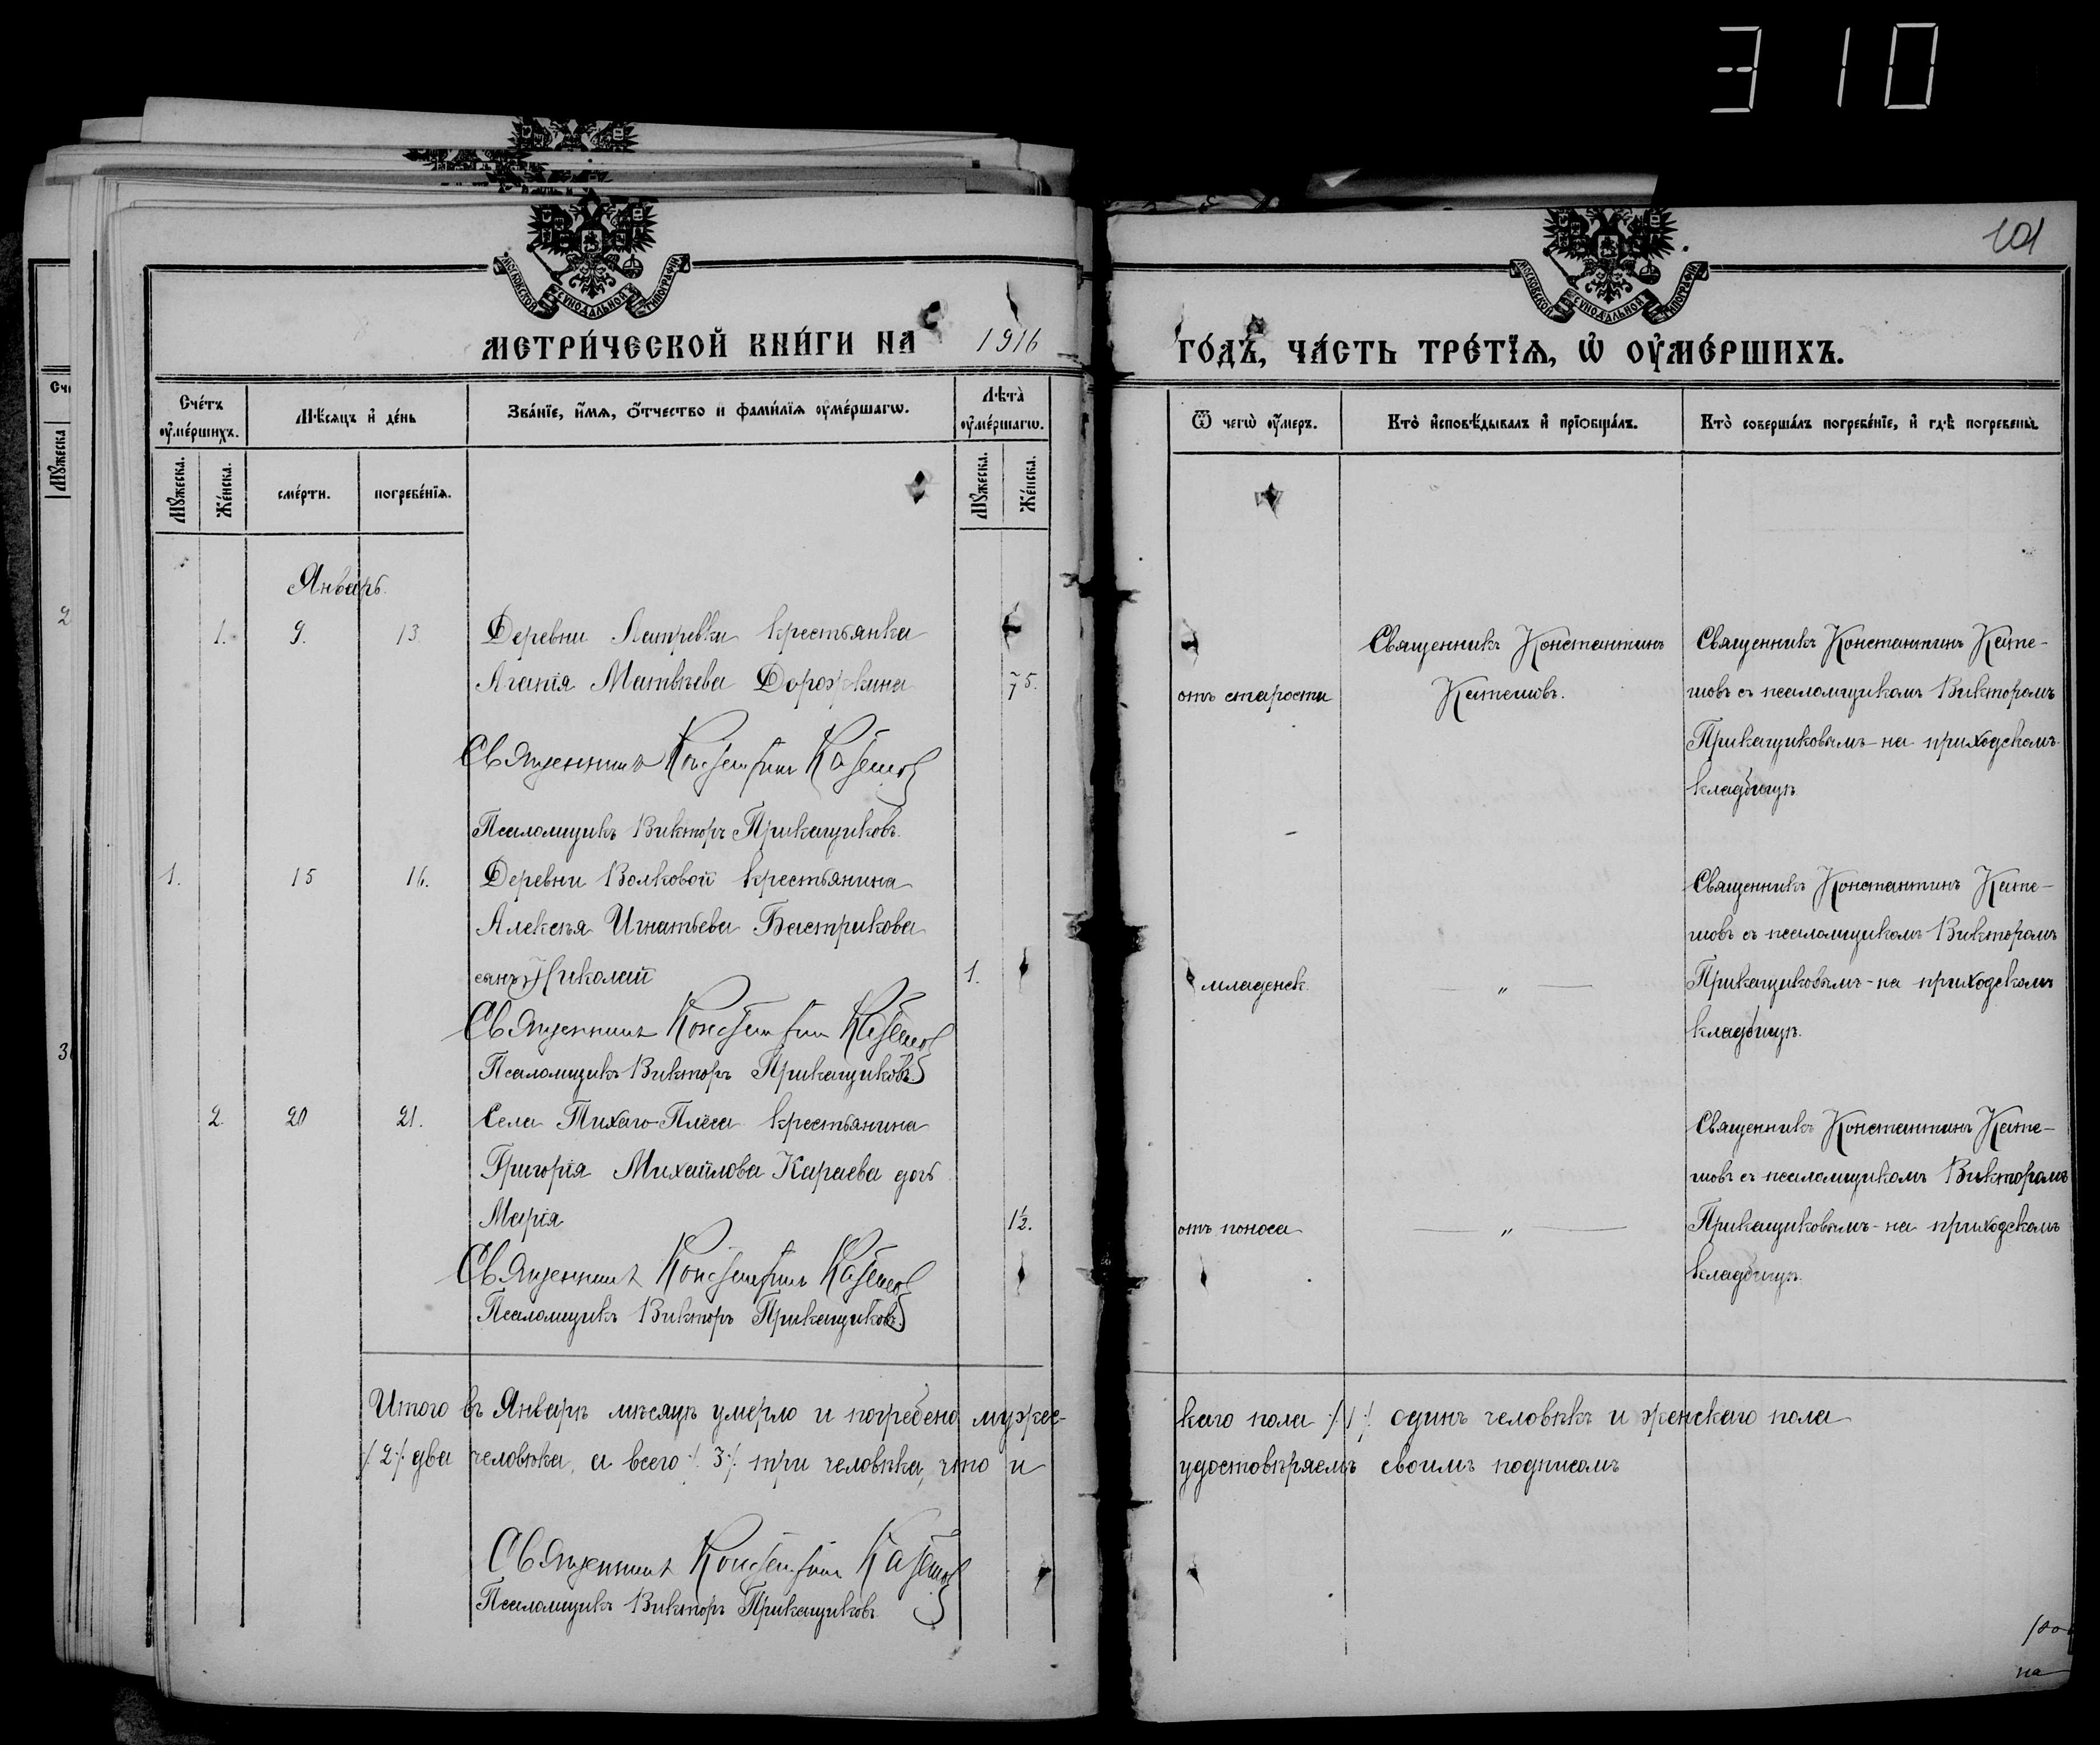 310
101
МОСКОВСКОЙ СѴНОДАЛЬНОЙ ТИПОГРАФІИ
МОСКОВСКОЙ СѴНОДАЛЬНОЙ ТИПОГРАФІИ
МЕТРИ́ЧЕСКОЙ КНИ́ГИ НА 1916 ГО́ДЪ, ЧА́СТЬ ТРЕ́ТЇѦ, Ѡ҆ ОУ҆МЕ́РШИХЪ.
Сче́тъ оу҆ме́ршихъ.
Мꙋ́жеска.
Же́нска.
Мѣ́сѧцъ и҆ де́нь
сме́рти.
погребе́нїѧ.
Зва́нїе, и҆́мѧ, ѻ҆́тчество и фами́лїѧ оу҆ме́ршагѡ.
Лѣ̀та оу҆ме́ршагѡ.
Мꙋ́жеска.
Же́нска.
Ѿ чегѡ̀ оу҆́меръ.
Кто̀ и҆сповѣ́дывалъ и҆ прїѻбща́лъ.
Кто̀ соверша́лъ погребе́нїе, и҆ гдѣ̀ погребены̀.
Январь.
1. 9. 13. Деревни крестьянка
Агапія Матвѣева Дорожкина 75.
Священникъ Константинъ Катешов
Псаломщикъ Викторъ Прикащиковъ.
отъ старости
Священникъ Константинъ
Катешовъ.
Священникъ Константинъ Кате-
шовъ съ псаломщикомъ Викторомъ
Прикащиковымъ - на приходскомъ
кладбищѣ.
1. 15 16. Деревни Волковой крестьянина
Алексѣя Игнатьева Бастрикова
сынъ Николай 1.
Священникъ Константинъ Катешов
Псаломщикъ Викторъ Прикащиковъ.
младенск.
— „ —
Священникъ Константинъ Кате-
шовъ съ псаломщикомъ Викторомъ
Прикащиковымъ - на приходскомъ
кладбищѣ.
2. 20 21. Села Тихаго-Плёса крестьянина
Григорія Михайлова Караева дочь
Марія 1½.
Священникъ Константинъ Катешов
Псаломщикъ Викторъ Прикащиковъ.
отъ поноса
— „ —
Священникъ Константинъ Кате-
шовъ съ псаломщикомъ Викторомъ
Прикащиковымъ - на приходскомъ
кладбищѣ.
Итого въ Январѣ мѣсяцѣ умерло и погребено мужес-каго пола /1/ одинъ человѣкъ и женскаго пола
/2/ два человѣка, а всего /3/ три человѣка, что и удостовѣряемъ своимъ подписомъ
Священникъ Константинъ Катешов
Псаломщикъ Викторъ Прикащиковъ.
на